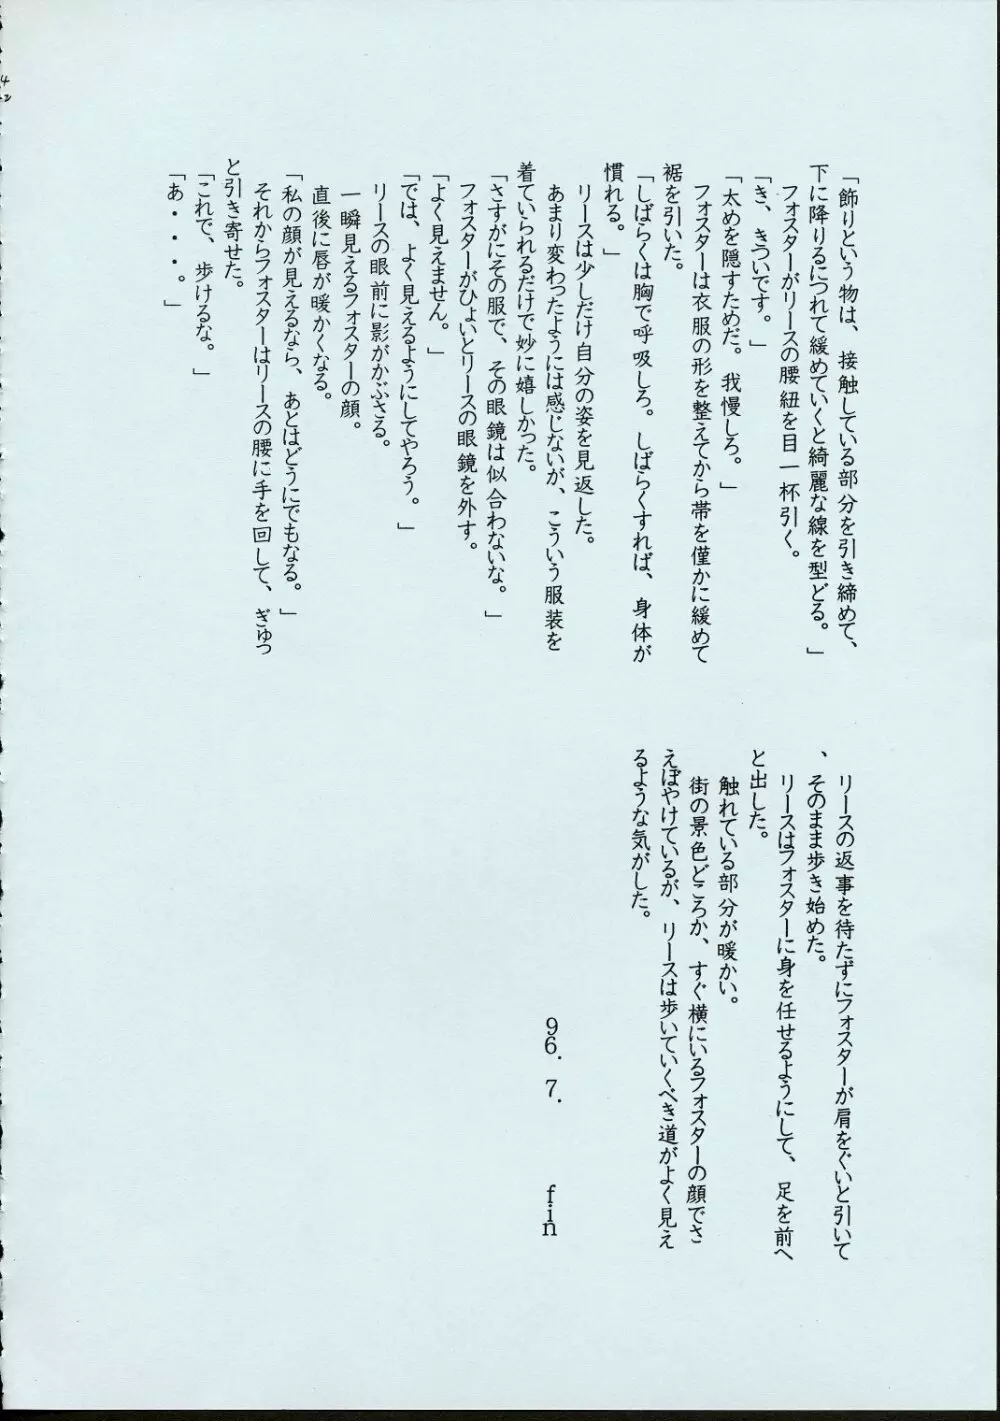 「飾りという物は、接触している部分を引き締めて、
下に降りるにつれて緩めていくと綺麗な線を型どる。」
フォスターがリースの腰紐を目一杯引く。
「き、きついです。」
「太めを隠すためだ。我慢しろ。」
フォスターは衣服の形を整えてから帯を僅かに緩めて
裾を引いた。
「しばらくは胸で呼吸しろ。しばらくすれば、身体が
慣れる。」
リースは少しだけ自分の姿を見返した。
あまり変わったようには感じないが、こういう服装を
着ていられるだけで妙に嬉しかった。
「さすがにその服で、その眼鏡は似合わないな。」
フォスターがひょいとリースの眼鏡を外す。
「よく見えません。」
「では、よく見えるようにしてやろう。」
リースの眼前に影がかぶさる。
一瞬見えるフォスターの顔。
直後に唇が暖かくなる。
「私の顔が見えるなら、あとはどうにでもなる。」
それからフォスターはリースの腰に手を回して、ぎゅっ
と引き寄せた。
「これで、歩けるな。」
「あ・・・・。」
リースの返事を待たずにフォスターが肩をぐいと引いて
、そのまま歩き始めた。
リースはフォスターに身を任せるようにして、足を前へ
と出した。
触れている部分が暖かい。
街の景色どころか、すぐ横にいるフォスターの顔でさ
えぼやけているが、リースは歩いていくべき道がよく見え
るような気がした。
96. 7. fin